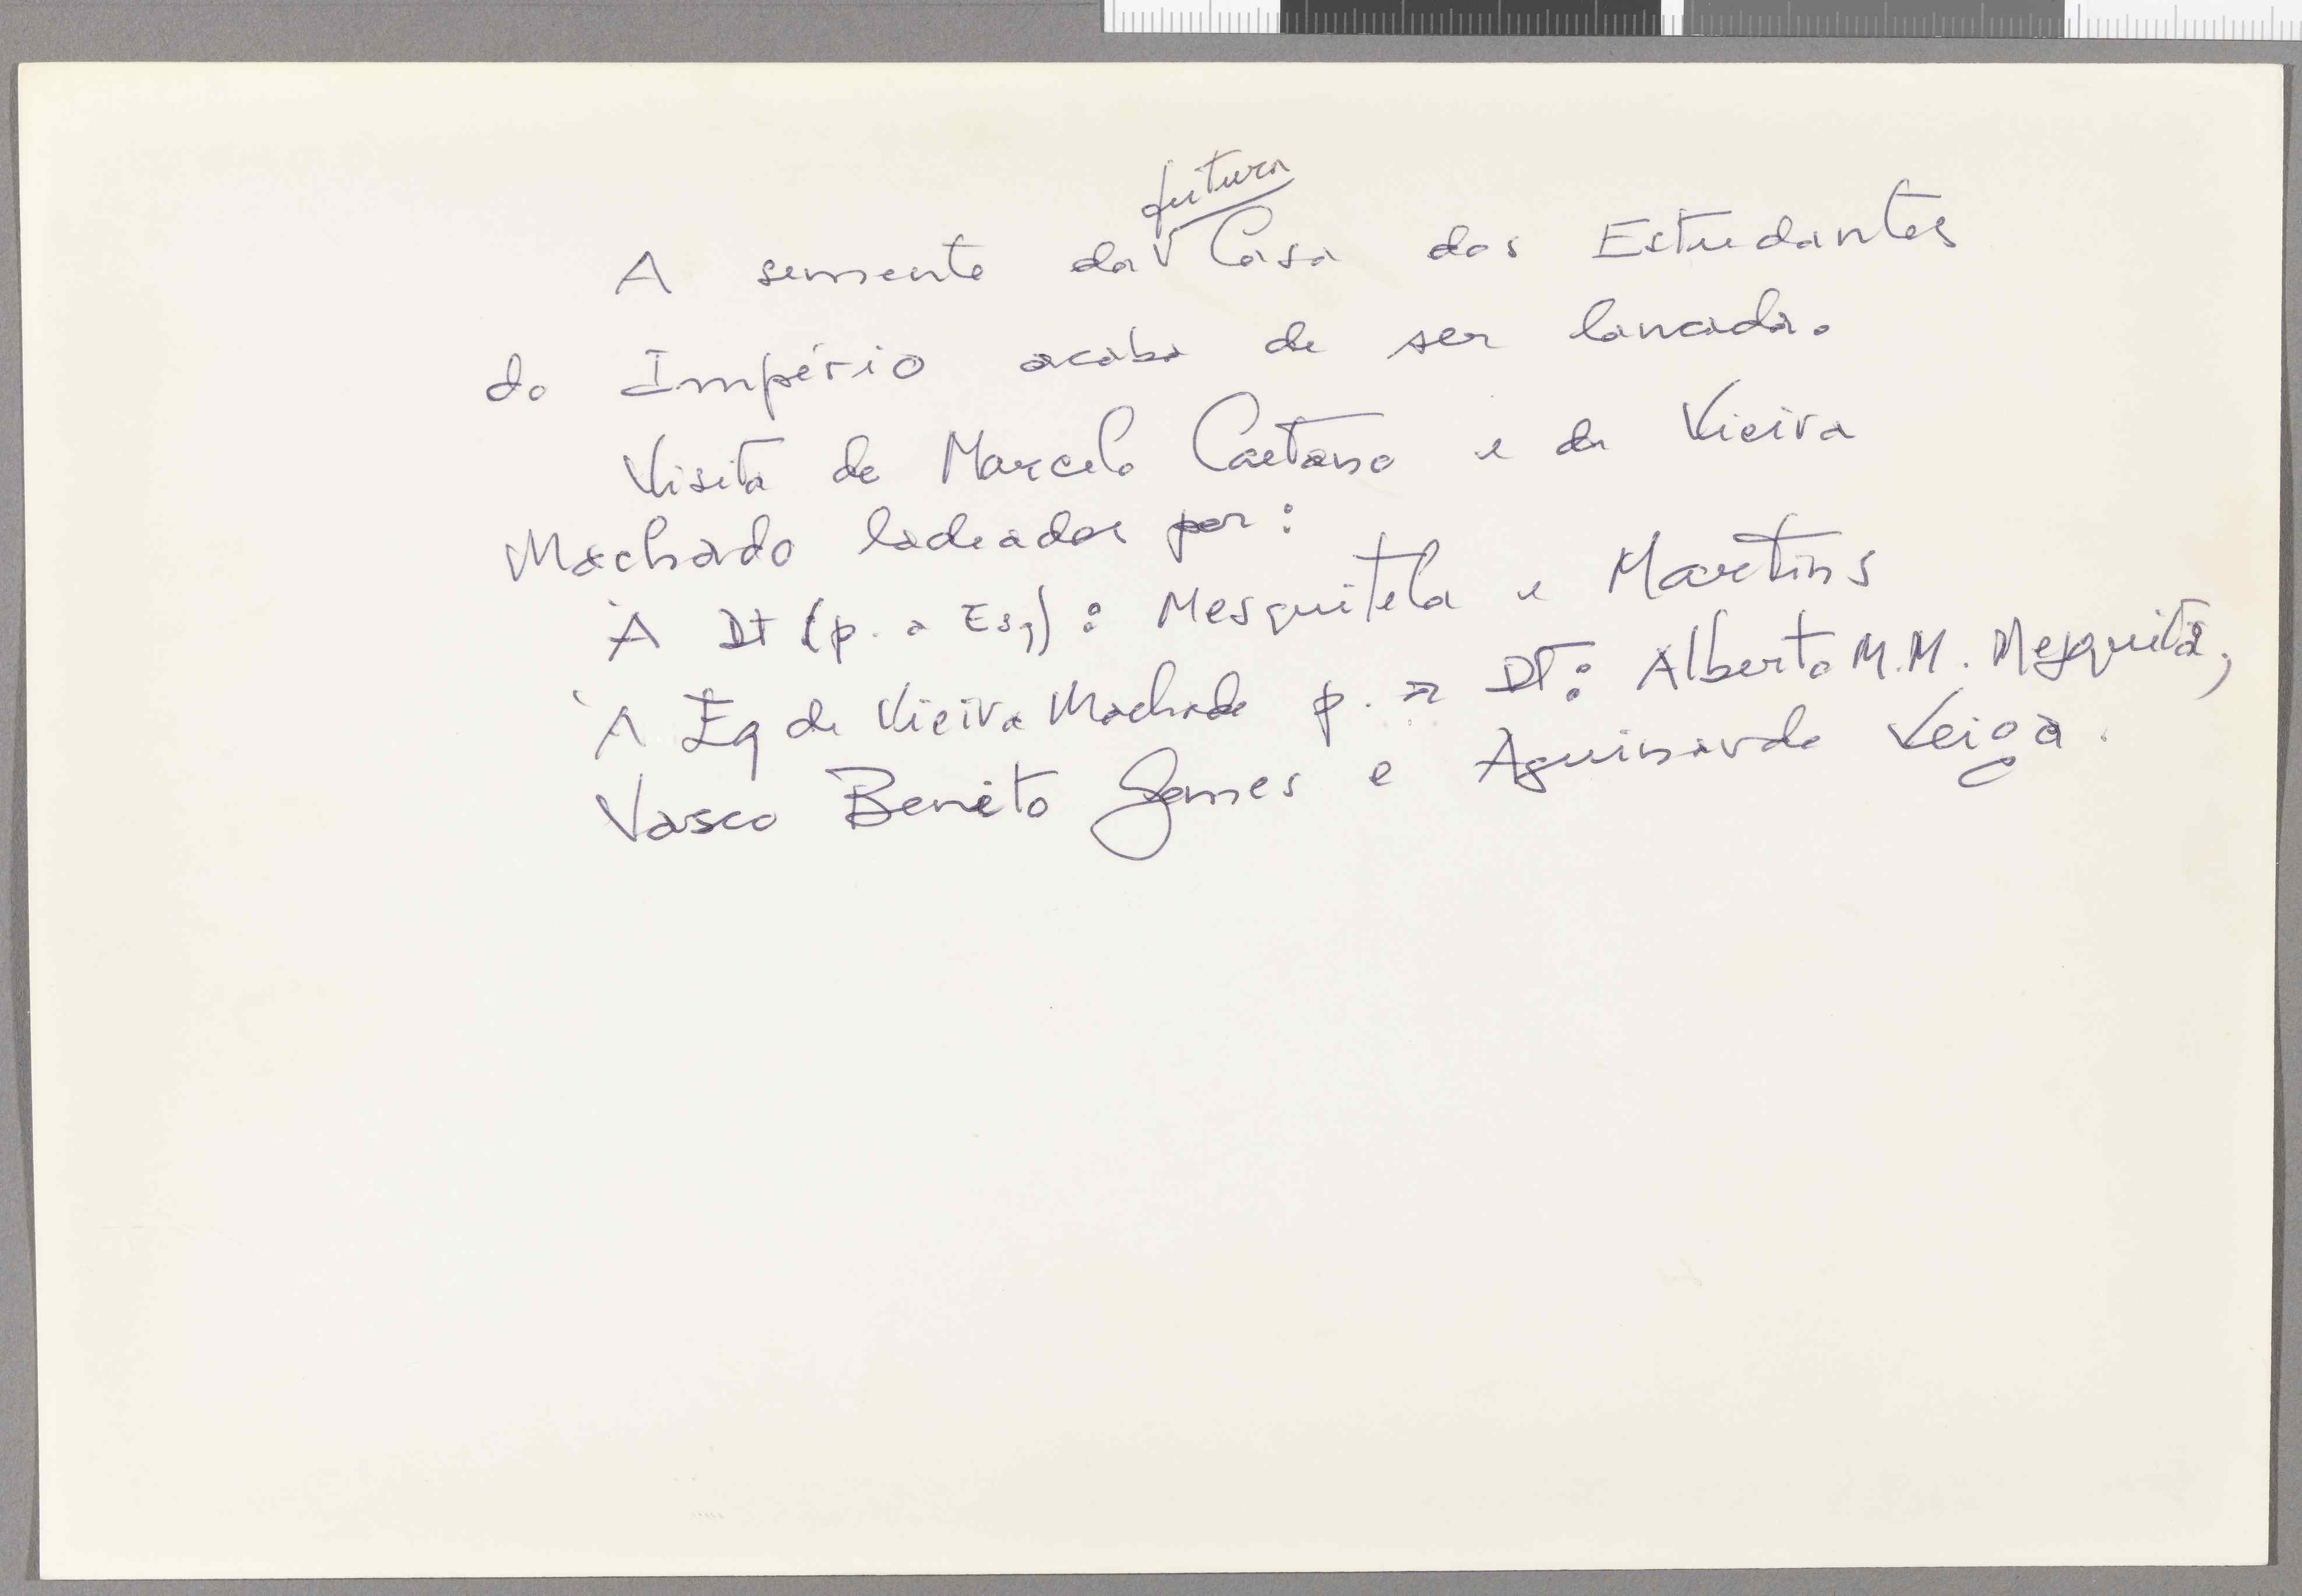 futura
A semente da V Casa dos Estudantes
do Império acaba de ser lancada.
Visita de Marcelo Caetano e de Vieira
Machado ladeados por:
À Dt (p. a Esq): Mesquitela e Martins
À Eq de Vieira Machado p. a DT: Alberto M.M. Mesquita,
Vasco Benito Gomes e Aguinardo Veiga.